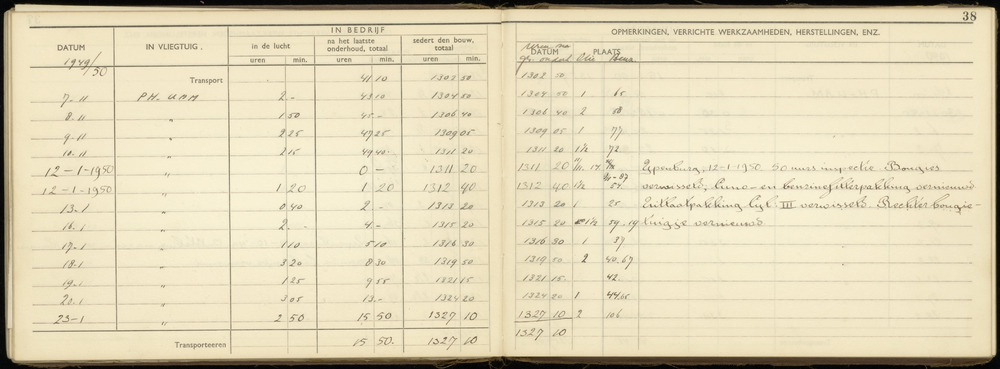 38
IN BEDRIJF
DATUM IN VLIEGTUIG. in de lucht na het laatste onderhoud, totaal sedert den bouw, totaal
uren min. uren min. uren min.
1949/50
Transport 41 10 1302 50
7-11 PH-UAH 2 - 43 10 1304 50
8-11 " 1 50 45 - 1306 40
9-11 " 2 25 47 25 1309 05
10-11 " 2 15 49 40 1311 20
12-1-1950 " 0 - 1311 20
12-1-1950 " 1 20 1 20 1312 40
13-1 " 0 40 2 - 1313 20
16-1 " 2 - 4 - 1315 20
17-1 " 1 10 5 10 1316 30
18-1 " 3 20 8 30 1319 50
19-1 " 1 25 9 55 1321 15
20-1 " 3 05 13 - 1324 20
23-1 " 2 50 15 50 1327 10
Transporteeren 15 50. 1327 10
OPMERKINGEN, VERRICHTE WERKZAAMHEDEN, HERSTELLINGEN, ENZ.
DATUM PLAATS
uren na
Olie Benz.
1302 50
1304 50 1 65
1306 40 2 58
1309 05 1 77
1311 20 1½ 72
1311 20 Ypenburg, 12-1-1950 50 uurs inspectie. Bougies
1312 40 1½ 54. verwisseld, linno- en benzinefilterpakking vernieuwd
1313 20 1 25 Uitlaatpakking Cyl. III verwisseld. Rechter bougie-
1315 20 1½ 59.19 tuigje vernieuwd
1316 30 1 37
1319 50 2 40.67
1321 15 - 42
1324 20 1 44.65
1327 10 2 106
1327 10